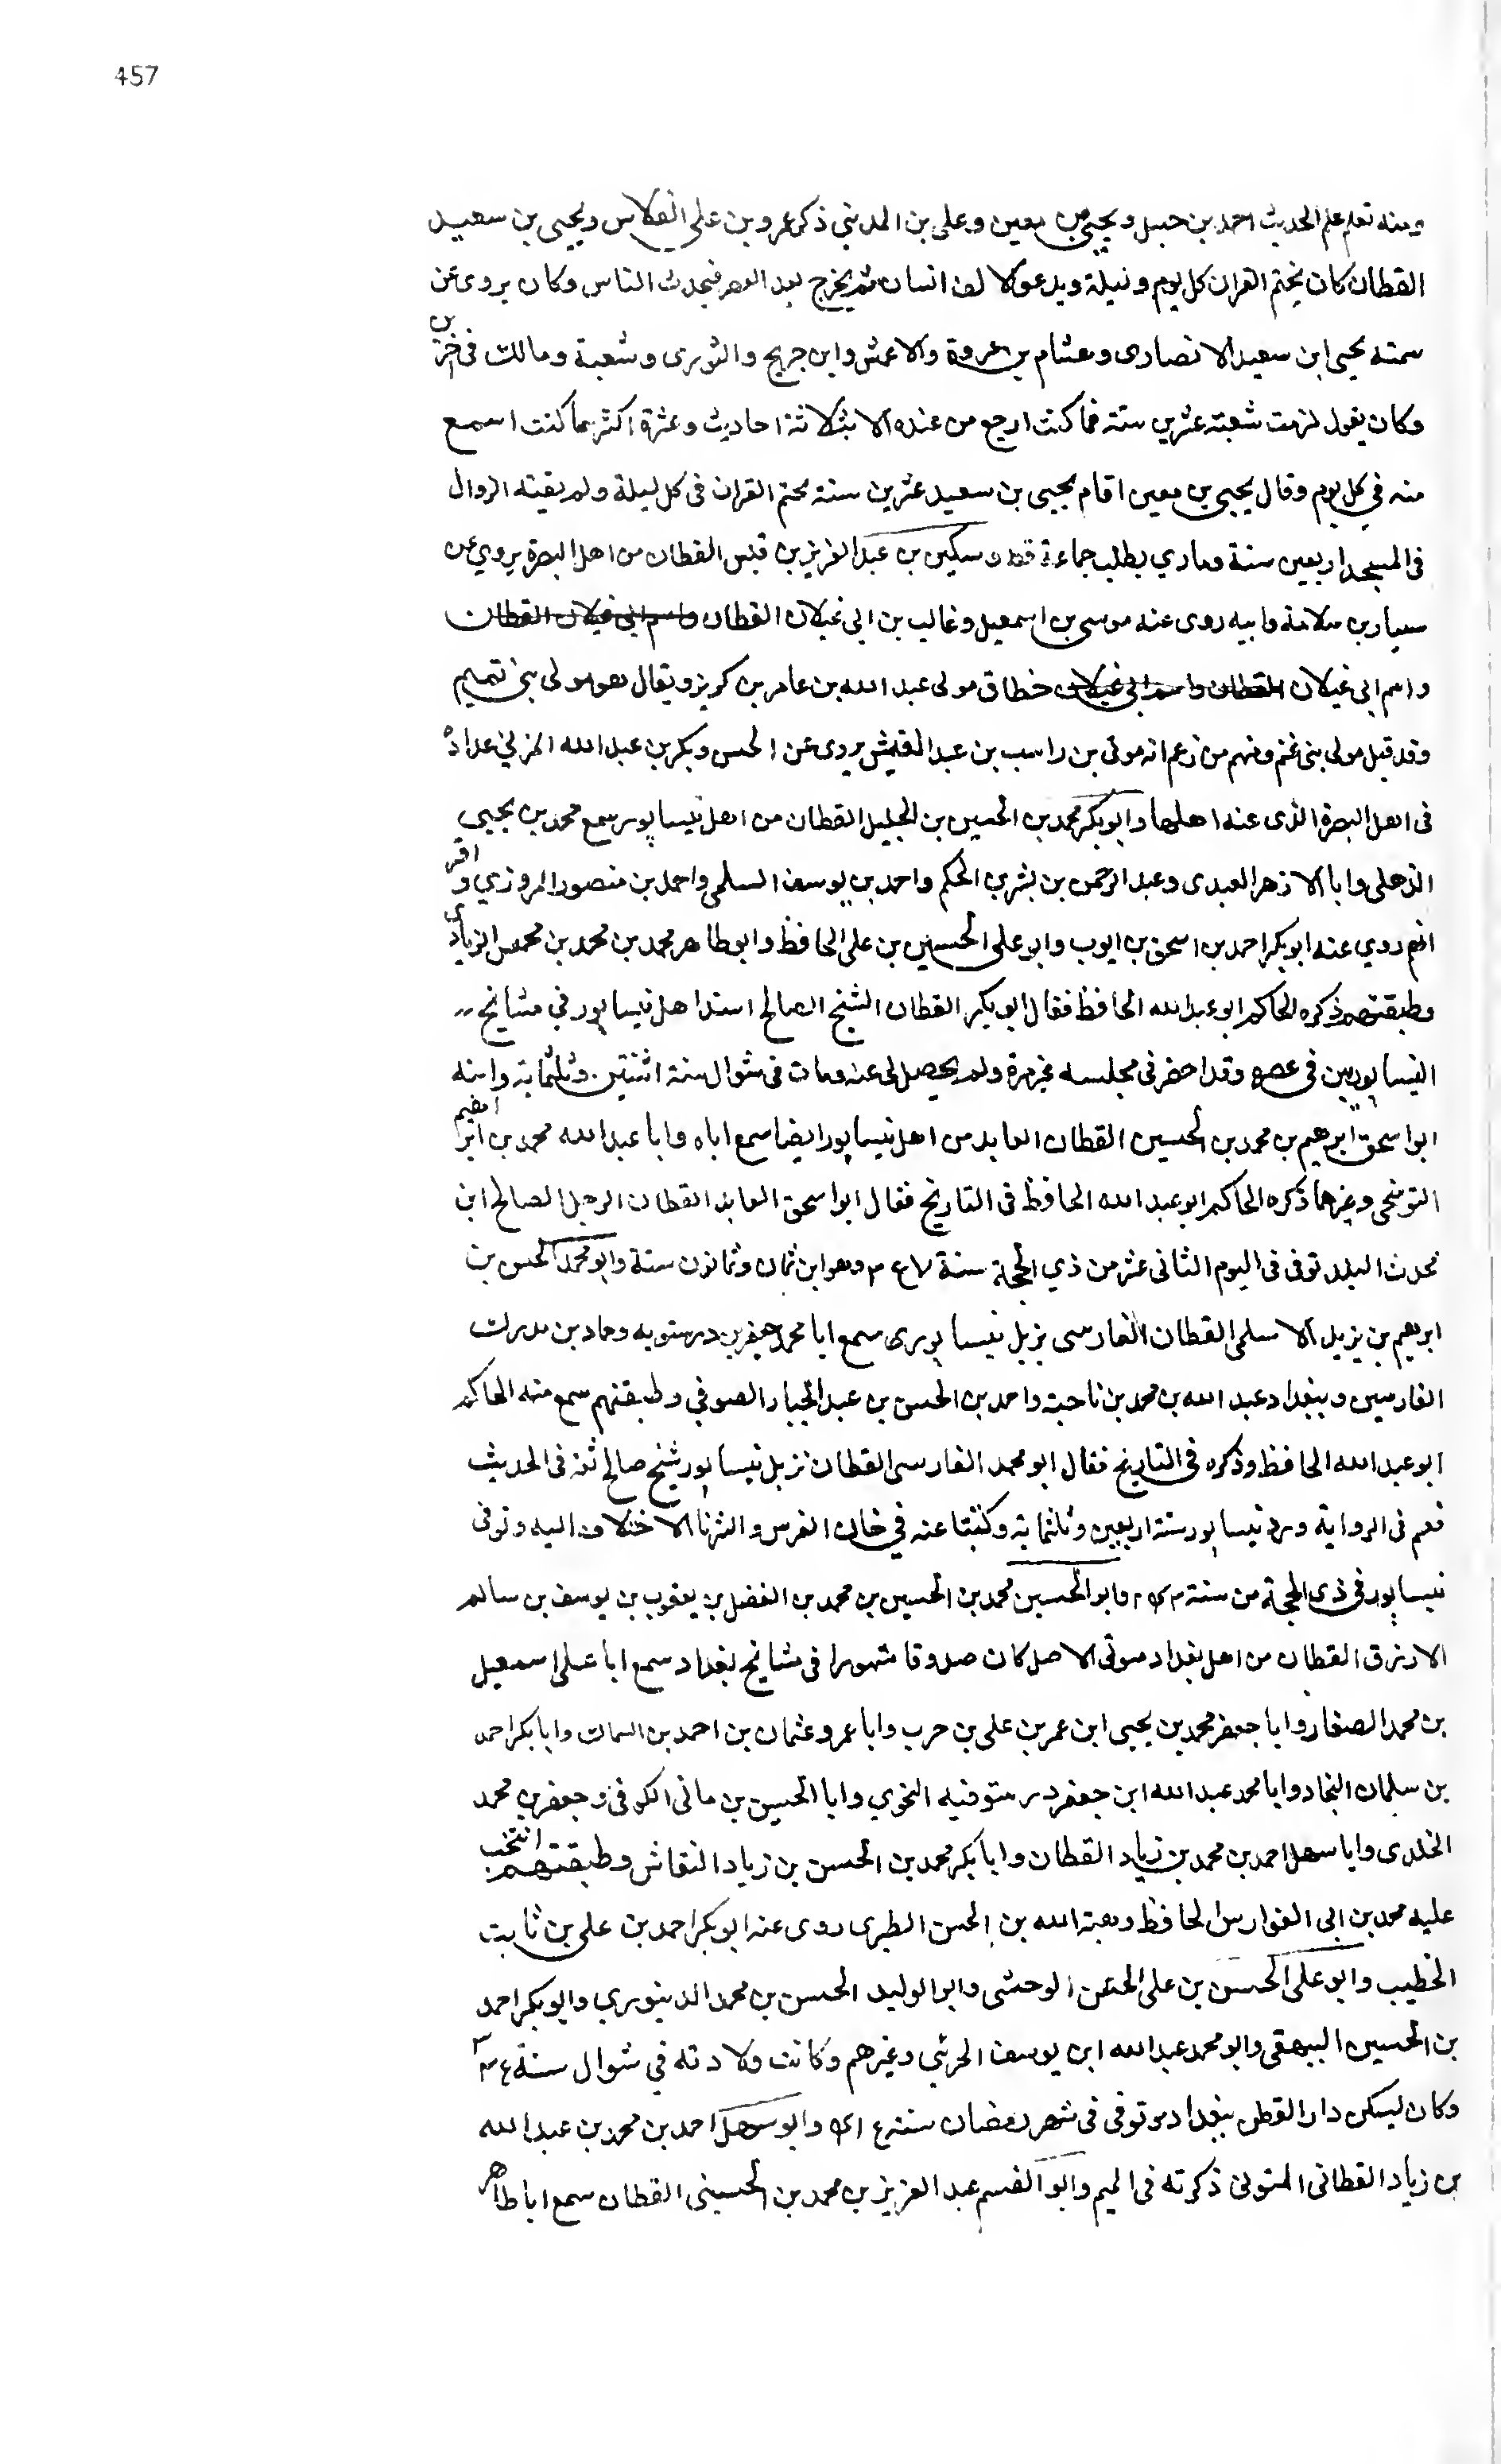 457
ومنه تعلم علم الحديث احمد بن حنبل ويحيى بن معين وعلى بن المديني ذكر عمرو بن على الفلاس ويحيى بن سعيد
القطان كان يختم القران كل يوم وليلة ويدعو لالف انسان ثم يخرج بعد العصر فيحدث الناس وكان يروى عن
سمته يحيى ابن سعيد الانصارى وهشام بن عروة والاعمش وابن جريج والثورى وشعبة ومالك فى اخرين
وكان يقول لزمت شعبة عشرين سنة فما كنت ارجع من عنده الا بثلاثة احاديث وعشرة اكثر ما كنت اسمع
منه في كل يوم وقال يحيى بن معين اقام يحيى بن سعيد عشرين سنة يختم القران فى كل ليلة ولم يفته الزوال
فى المسجد اربعين سنة وما رى يطلب جماعة قط وسكين بن عبد العزيز بن قيس القطان من اهل البصرة يروي عن
سيار بن سلامة وابيه روى عنه موسى بن اسمعيل وغالب بن ابى غيلان القطان واسم ابى غيلان القطان
واسم ابى غيلان القطان واسم ابى غيلان خطاق مولى عبد الله بن عامر بن كريز ويقال هو مولى بنى تميم
وقد قيل مولى بنى غنم ومنهم من زعم انه مولى بن راسب بن عبد القيش يروى عن الحسن وبكر بن عبد الله المزني عداده
فى اهل البصرة الذى عنه اهلها وابو بكر محمد بن الحسين بن الجليل القطان من اهل نيسابور سمع محمد بن يحيى
الذهلى وابا الازهر العبدى وعبد الرحمن بن بشر بن الحكم واحمد بن يوسف السلمى واحمد بن منصور المروزي واقر
انهم روي عنه ابو بكر احمد بن اسحق بن ايوب وابو على الحسين بن على الحافظ وابو طاهر محمد بن محمد بن محمش الزيادى
وطبقتهم ذكره الحاكم ابو عبد الله الحافظ فقال ابو بكر القطان الشيخ الصالح اسند اهل نيسابور في مشايخ
النيسابوريين فى عصره وقد احضر فى مجلسه غير مرة ولم يحصل لى عنه ومات فى شوال سنة اثنتين وثلثماية وابنه
ابو اسحق ابرهيم بن محمد بن الحسين القطان العابد من اهل نيسابور ايضا سمع اباه وابا عبد الله محمد بن ابراهيم
التوشجى وغيرهما ذكره الحاكم ابو عبد الله الحافظ فى التاريخ فقال ابو اسحق العابد القطان الرجل الصالح ابن
محدث البلد توفى فى اليوم الثانى عشر من ذي الحجة سنة ٣٤٧ وهو ابن ثمان وثمانون سنة وابو محمد الحسن بن
ابرهيم بن يزيد الاسلمى القطان الفارسى نزيل نيسابورى سمع ابا محمد جعفر بن درستويه وحماد بن مدرك
الفارسيين وببغداد عبد الله بن محمد بن ناجية واحمد بن الحسن بن عبد الجبار الصوفي وطبقتهم سمع منه الحاكم
ابو عبد الله الحافظ وذكره فى التاريخ فقال ابو محمد الفارسى القطان نزيل نيسابور شيخ صالح ثقة فى الحديث
فهم فى الرواية ورد نيسابور سنة اربعين وثلثماية وكتبنا عنه في خان الفرس واكثرنا الاختلاف اليه وتوفى
نيسابور فى ذى الحجة من سنة وابو الحسين محمد بن الحسين بن محمد بن الفضل بن يعقوب بن يوسف بن سالم
الازرق القطان من اهل بغداد متوثى الاصل كان صدوقا مشهورا فى مشايخ بغداد سمع ابا على اسمعيل
بن محمد الصفار وابا جعفر محمد بن يحيى ابن عمر بن على بن حرب وابا عمرو عثمان بن احمد بن السماك وابا بكر احمد
بن سلمان النجاد وابا محمد عبد الله ابن جعفر درستوفيه النحوي وابا الحسين بن مانى الكوفى وجعفر بن محمد
الخلدى وابا سهل احمد بن محمد بن زياد القطان وابا بكر محمد بن الحسن بن زياد النقاش وطبقتهم انتخب
عليه محمد بن ابى الفوارس الحافظ وهبة الله بن الحسن الطبرى روى عنه ابو بكر احمد بن على بن ثابت
الخطيب وابو على الحسن بن على الوحشى وابو الوليد الحسن بن محمد الدينوري وابو بكر احمد
بن الحسين البيهقى وابو محمد عبد الله ابن يوسف الحرثي وغيرهم وكانت ولادته في شوال سنة
وكان ليسكن دار القطن ببغداد وتوفى فى شهر رمضان سنة وابو سهل احمد بن محمد بن عبد الله
بن زياد القطانى المتوثى ذكرته فى الميم وابو القسم عبد العزيز بن محمد بن الحسينى القطان سمع ابا طاهر